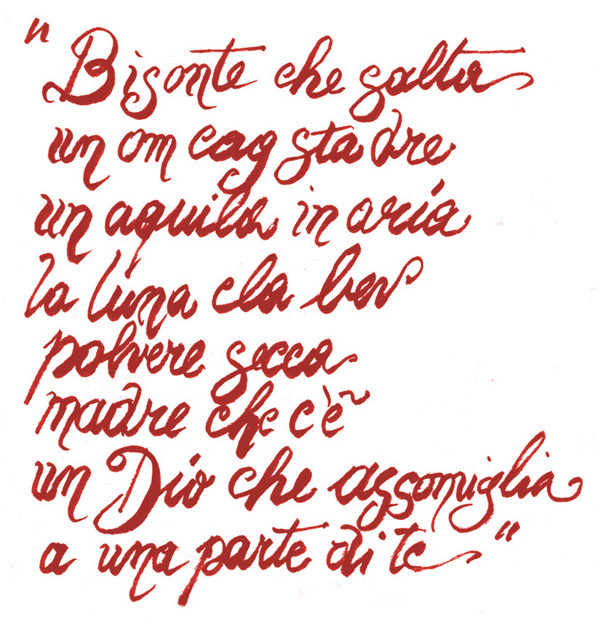 "Bisonte che salta
un om cag sta dre
un aquila in aria
la luna cla bev
polvere secca
madre che c'è
un Dio che assomiglia
a una parte di te"